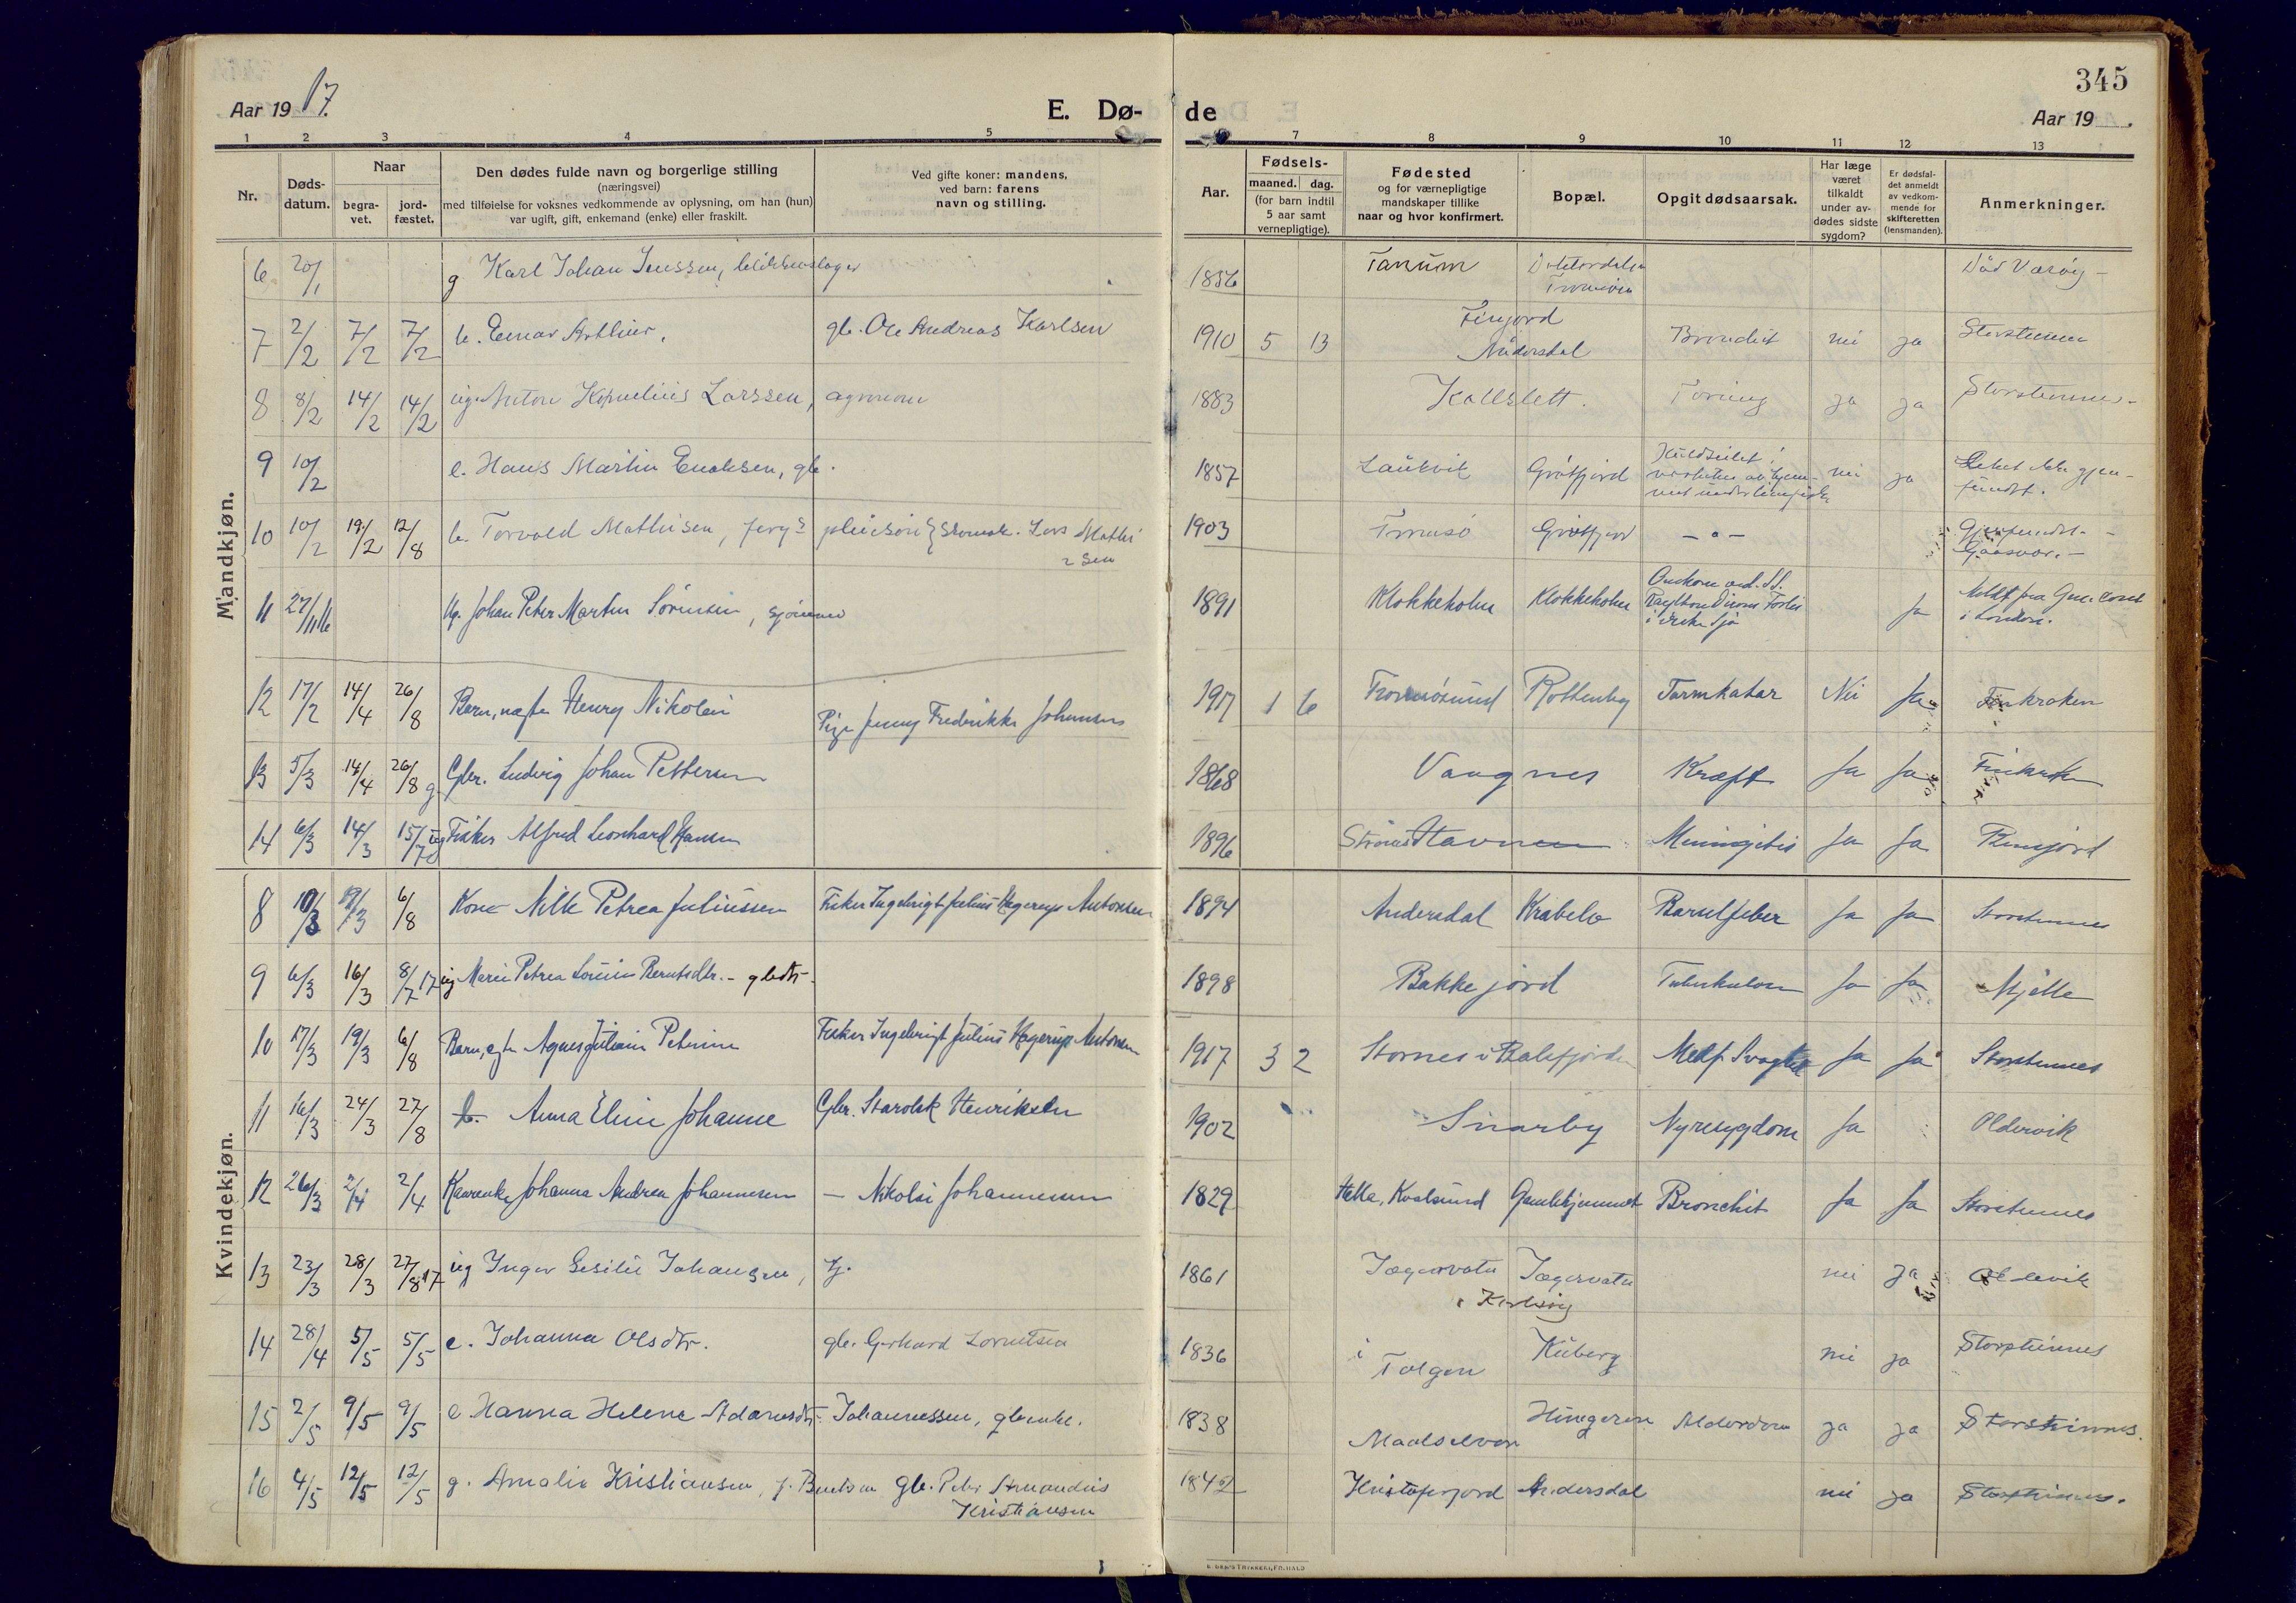 345
Aar 1917.
E. Dø-
de
Aar 19
1 2 3 4 5 7 8 9 10 11 12 13
Nr.
Døds-
datum.
Naar
begra-
vet.
jord-
fæstet.
Den dødes fulde navn og borgerlige stilling
(næringsvei)
med tilføielse for voksnes vedkommende av oplysning, om han (hun)
var ugift, gift, enkemand (enke) eller fraskilt.
Ved gifte koner: mandens,
ved barn: farens
navn og stilling.
Aar.
Fødsels-
maaned. dag.
(for barn indtil
5 aar samt
vernepligtige).
Fødested
og for værnepligtige
mandskaper tillike
naar og hvor konfirmert.
Bopæl.
Opgit dødsaarsak.
Har læge
været
tilkaldt
under av-
dødes sidste
sygdom?
Er dødsfal-
det anmeldt
av vedkom-
mende for
skifteretten
(lensmanden).
Anmerkninger.
Mandkjøn.
6 20/1 g Karl Johan Jenssen, blikkenslager 1856 Tanum Død Værøy -
7 2/2 7/2 7/2 b. Einar Arthur. gb. Ole Andreas Karlsen 1910 5 13 Andersdal Bronchit nei ja Storsteinnes
8 8/2 14/2 14/2 ug. Anton Kornelius Larssen, agronom 1883 Kallslett. Tæring ja ja Storsteinnes -
9 10/2 e. Hans Martin Enoksen, gb. 1857 Laukvik Grøtfjord Kuldseilet! nei ja Liket ikke gjen-
fundet.
10 10/2 19/2 12/8 b. Torvald Mathisen, pleiesøn 1903 Tromsø Grøtfjord - " - Gjenfundet. -
Gaasvær. -
11 27/11 16 Ug. Johan Peter Martin Sørensen, sjömand 1891 Klokkeholm Klokkeholm Omkom ved. Ja Meldt fra Gen. Cons.
i London.
12 17/2 14/4 26/8 Barn, uægte Henry Nikolai Pige Jenny Fredrikke Johansen 1917 1 6 Tromsösund Rottenbg Tarmkatar Nei Ja Finkroken
13 5/3 14/4 26/8 g Gbr. Ludvig Johan Pettersen 1868 Vaagnes Kræft Ja Ja Finkroken
14 6/3 14/3 15/7 ug Fisker Alfred Leonhard Hansen 1896 Meningitis Ja Ja
Kvindekjøn.
8 10/3 19/3 6/8 Kone Nille Petrea Juliussen Fisker Ingebrigt Julius Hagerup Antonsen 1894 Andersdal Krabelv Barselfeber Ja Ja Storsteinnes
9 6/3 16/3 8/7 17 ug Marie Petrea Lovise Berntsdtr. - gbdtr. 1898 Bakkejord Tuberkulose Ja Ja Mjelle
10 17/3 19/3 6/8 Barn, egte Agnes Juliane Petrine Fisker Ingebrigt Julius Hagerup Antonsen 1917 3 2 Stornes i Balsfjorden Medf. Svaghed Ja Ja Storsteinnes
11 16/3 24/3 27/8 b. Anna Eline Johanne Gbr. Starolsk Henriksen 1902 Snarby Nyresygdom Ja Oldervik
12 26/3 2/4 2/4 Kaarenke Johanna Andrea Johannesen - Nikolai Johannesen 1829 Hella, Kvalsund Gamlehjemmet Bronchit Ja Ja Storsteinnes
13 23/3 28/3 27/8 17 ug Inger Sesilie Johansen, tj. 1861 Jægervatn Jægervatn nei ja Oldevik
i Karlsøy
14 28/4 5/5 5/5 e. Johanna Olsdtr. gb. Gerhard Lorentsen 1836 i Tolgen Kuberg nei ja Storsteinnes
15 2/5 9/5 9/5 e Hanna Helene Adamsdtr. Johannessen, gbenke. 1838 Maalselven Hungeren Alderdom ja ja Storsteinnes.
16 4/5 12/5 12/5 g. Amalie Kristiansen, f. Berntsen gb. Peter Amandus
Kristiansen 1842 Kristoferjord Andersdal nei ja Storsteinnes.